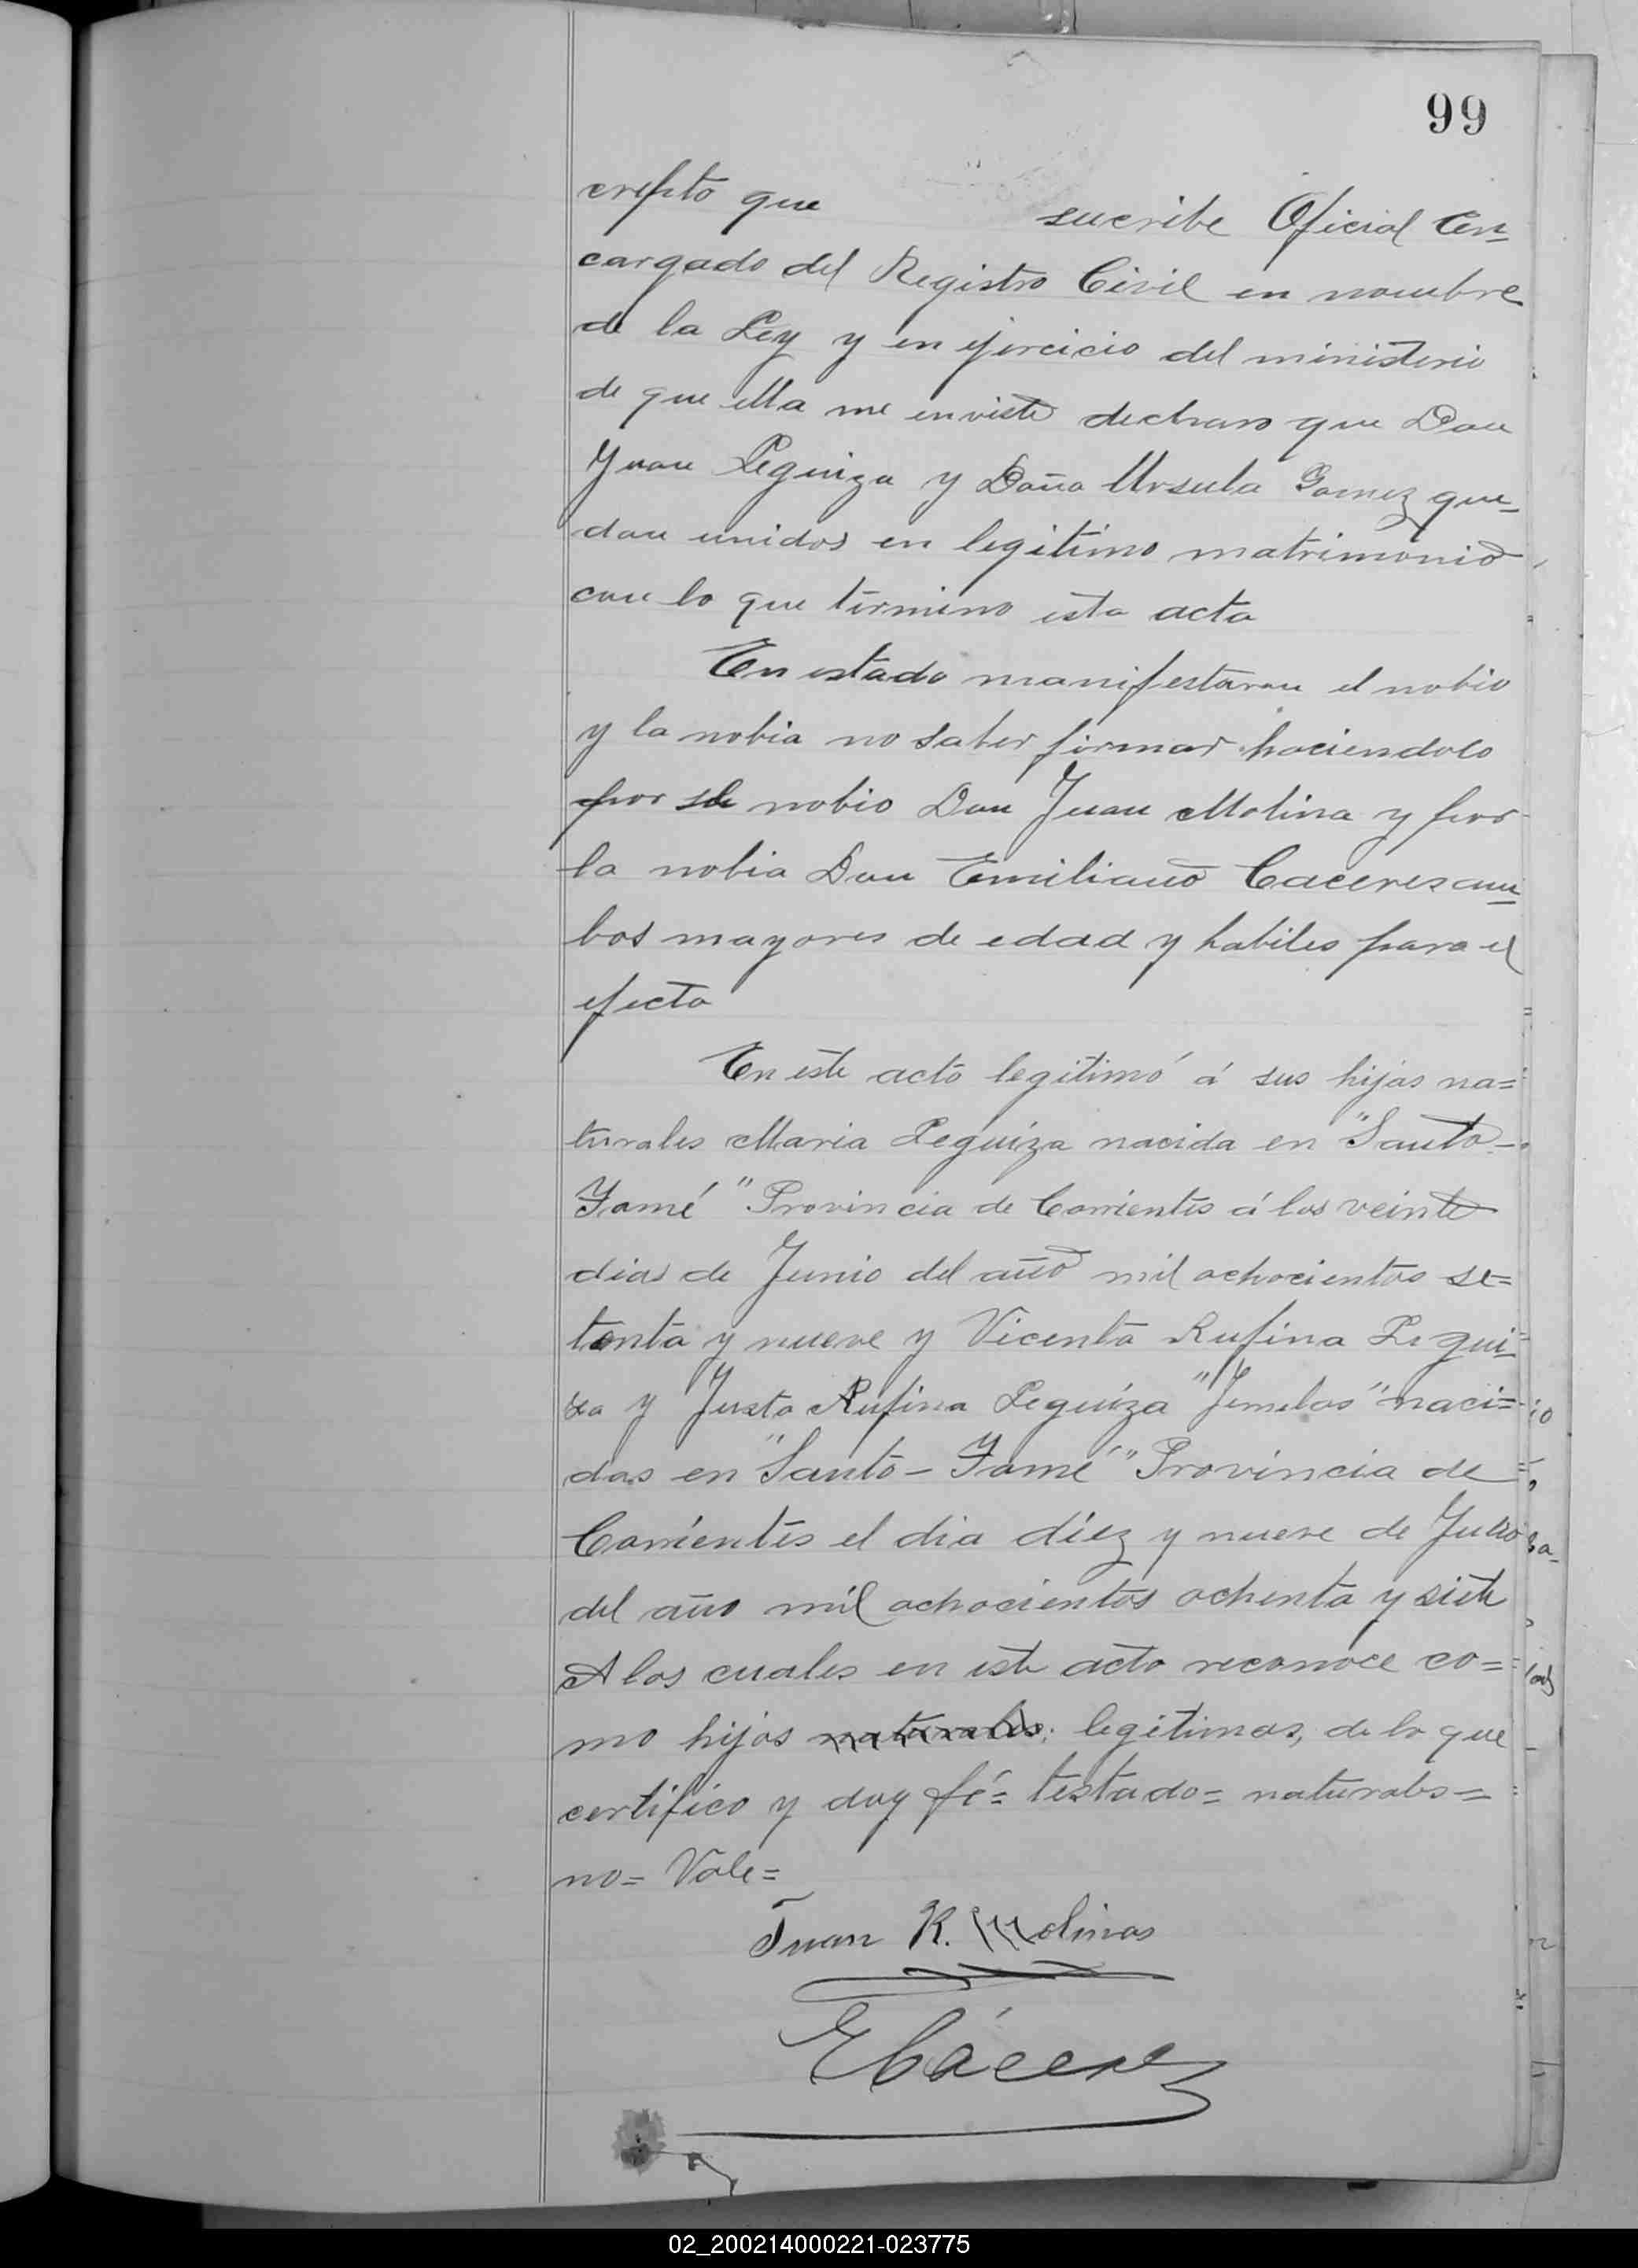 99
crepto que sucribe Oficial En-
cargado del Registro Civil en nombre
de la Ley y en ejercicio del ministerio
de que ella me enviste declaro que Don
Juan Leguiza y Doña Ursula Gomez que-
dan unidos en legitimo matrimonio
con lo que termino esta acta
En estado manifestaron el nobio
y la nobia no saber firmar haciendolo
por el nobio Don Juan Molina y por
la nobia Don Emiliano Caceres am-
bos mayores de edad y habiles para el
efecto
En este acto legitimó á sus hijas na=
turales Maria Leguiza nacida en "Santo-
Tomé" Provincia de Corrientes á los veinte
dias de Junio del año mil ochocientos se=
tenta y nueve y Vicenta Rufina Legui-
za y Justa Rufina Leguiza "Jemelas" naci=
das en "Santo-Tomé" Provincia de
Corrientes el dia diez y nueve de Julio
del año mil ochocientos ochenta y siete
A los cuales en este acto reconoce co=
mo hijas naturales; legitimas, de lo que
certifico y doy fé= testado= naturales=
no= Vale=
Juan R. Molinas
ECáceres
02_200214000221-023775